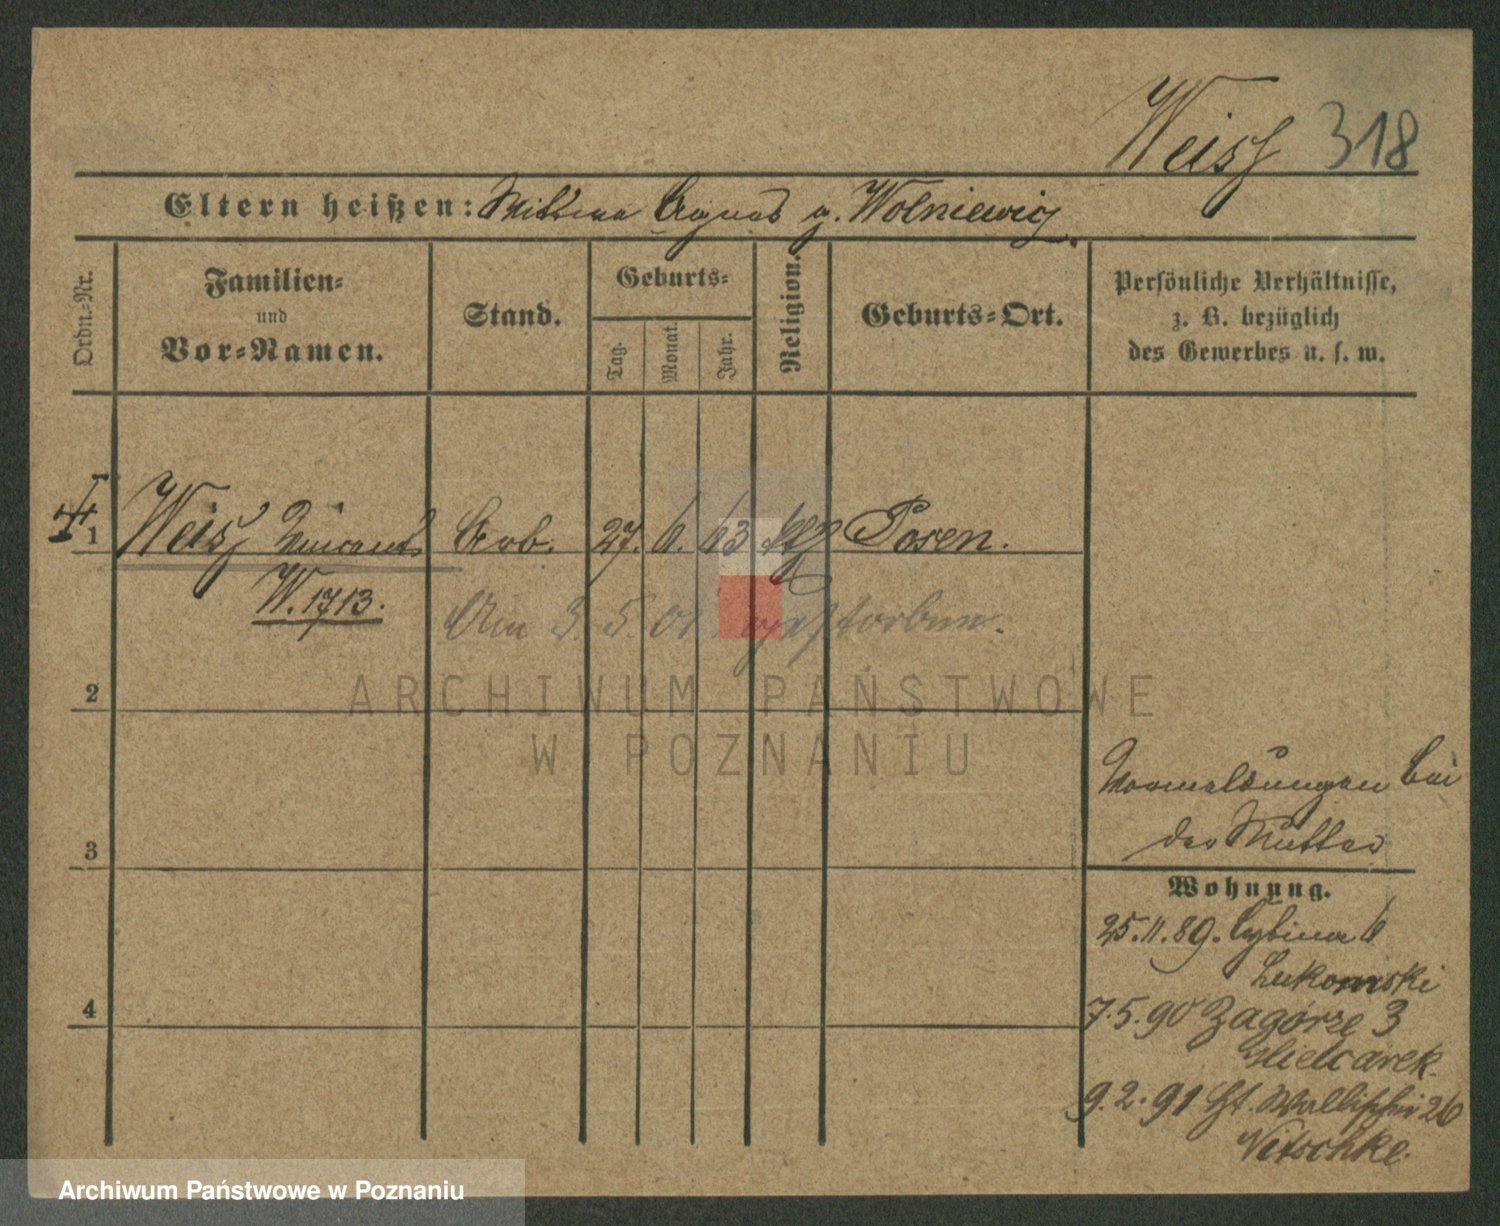 Weiss 318
Eltern heißen: Wittwe Agnes g. Wolniewicz
Ordn.-Nr.
Familien-
und
Vor-Namen.
Stand.
Geburts-
Tag.
Monat.
Jahr.
Religion.
Geburts-Ort.
Persönliche Verhältnisse,
z. B. bezüglich
des Gewerbes u. s. w.
1 Weiss Vincent Arb. 27. 6. 63 Posen.
W. 1713.
Am 3. 5. 01 gestorben.
2
3
4
Vormeldungen bei
der Mutter
Wohnung.
25.11.89. Cybina 6
Lukomski
7.5.90 Zagórze 3
Mielcarek
9.2.91 Wallischei 26
Nitschke.
ARCHIWUM PAŃSTWOWE
W POZNANIU
Archiwum Państwowe w Poznaniu